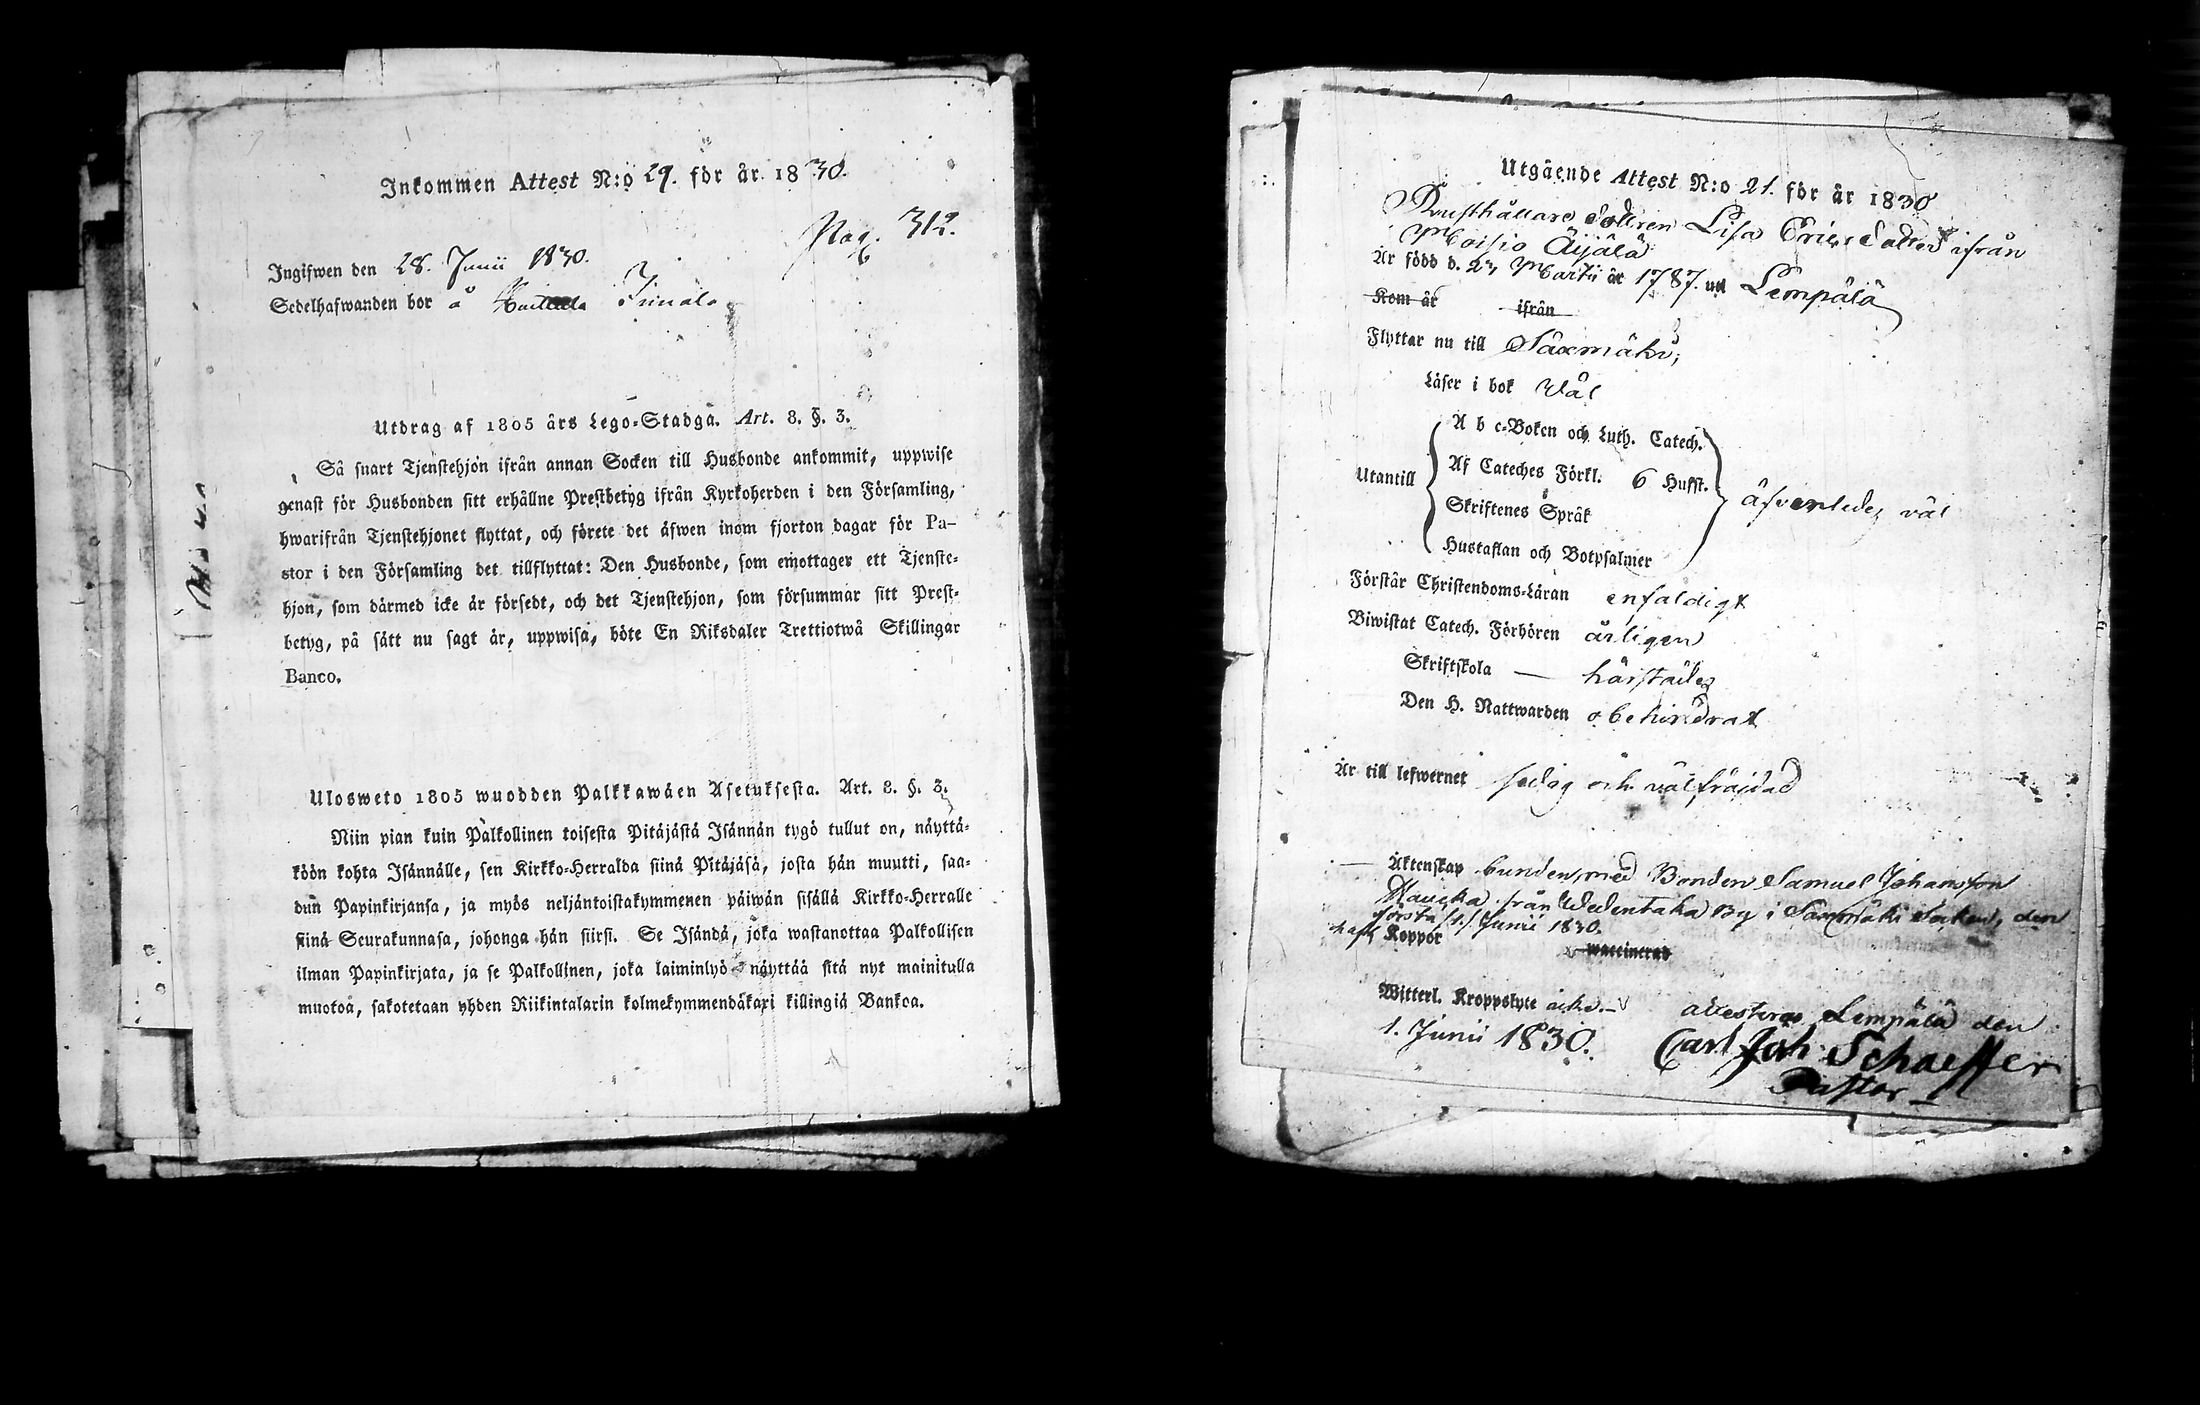 Inkommen Attest N:o 29. för år 1830.
Pag. 312.
Ingifwen den 28. Junii 1830.
Sedelhafwanden bor å
Utdrag af 1805 års Lego-Stadga. Art. 8. §. 3.
Så snart Tjenstehjon ifrån annan Socken till Husbonde ankommit, uppwise
genast för Husbonden sitt erhållne Prestbetyg ifrån Kyrkoherden i den Församling,
hwarifrån Tjenstehjonet flyttat, och förete det äfwen inom fjorton dagar för Pa-
stor i den Församling det tillflyttat: Den Husbonde, som emottager ett Tjenste-
hjon, som därmed icke är försedt, och det Tjenstehjon, som försummar sitt Prest-
betyg, på sätt nu sagt är, uppwisa, böte En Riksdaler Trettiotwå Skillingar
Banco.
Ulosweto 1805 wuodden Palkkawäen Asetuksesta. Art. 8. §. 3.
Niin pian kuin Palkollinen toisesta Pitäjästä Isännän tygö tullut on, näyttä-
köön kohta Isännälle, sen Kirkko-Herralda siinä Pitäjäsä, josta hän muutti, saa-
dun Papinkirjansa, ja myös neljäntoistakymmenen päiwän sisällä Kirkko-Herralle
siinä Seurakunnasa, johonga hän siirsi. Se Isändä, joka wastanottaa Palkollisen
ilman Papinkirjata, ja se Palkollinen, joka laiminlyö näyttää sitä nyt mainitulla
muotoa, sakotetaan yhden Riikintalarin kolmekymmendäkaxi killingiä Bankoa.
Utgående Attest N:o 21. för år 1830
Rusthållare Dottren Lisa Erics Dotter ifrån
Moisio Äijälä
Är född d. 23 Martii år 1787. uti Lempälä
Kom år ifrån
Flyttar nu till Säxmäki,
Läser i bok Väl
A b c-Boken och Luth. Catech.
Utantill Af Cateches Förkl. 6 Hufst. äfvenledes väl
Skriftenes Språk
Hustaflan och Botpsalmer
Förstår Christendoms-Läran enfaldigt
Biwistat Catech. Förhören årligen
Skriftskola — härstädes
Den H. Nattwarden obehindrat
Är till lefwernet sedig och välfräjdad
— Äktenskap bunden, med Bonden Samuel Johansson
från By i Saxmäki Socken, den
första /1./ Junii 1830.
haft Koppor
waccinerad
Witterl. Kroppslyte icke.—
attesteras Lempälä den
1. Junii 1830.
Carl Joh: Schaeffer
Pastor